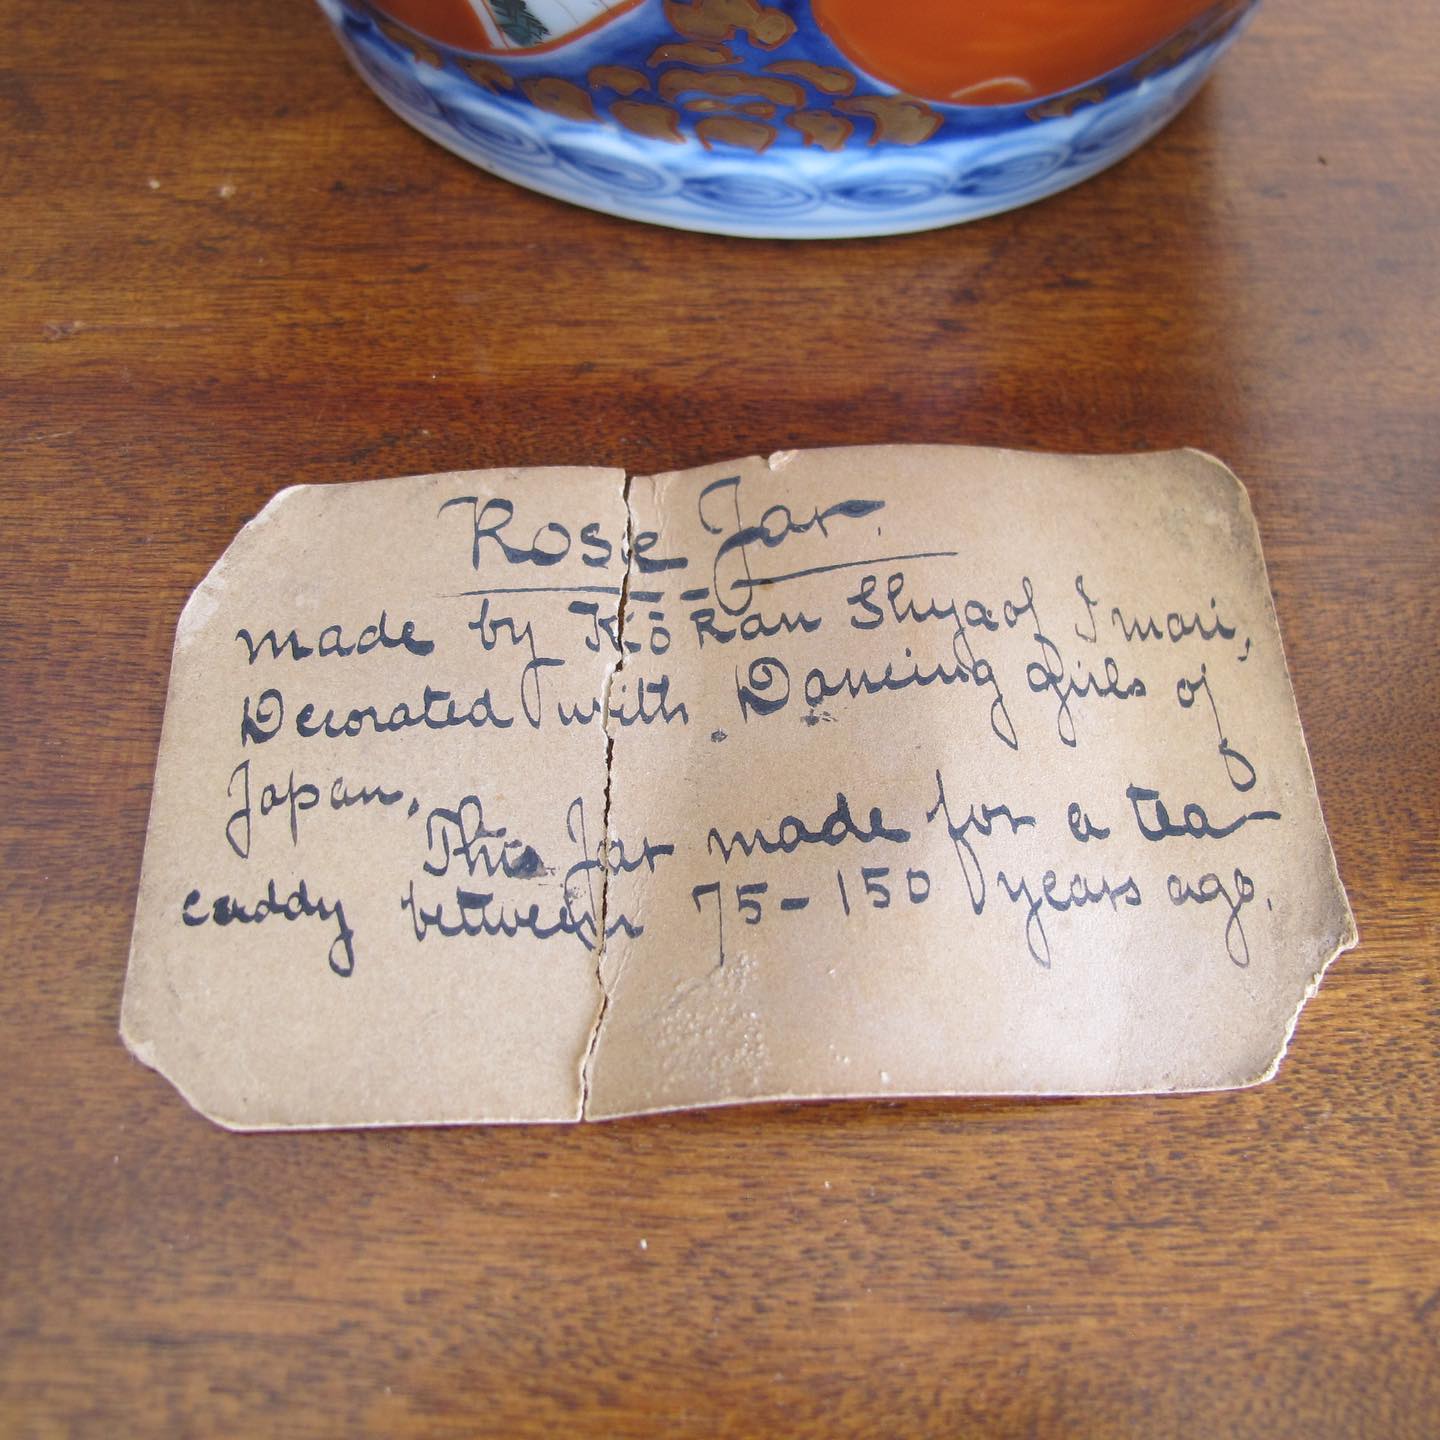 Rose Jar.
made by Kō Ran Shya of Imari,
Decorated with Dancing girls of
Japan.
This Jar made for a tea
caddy between 75-150 years ago.